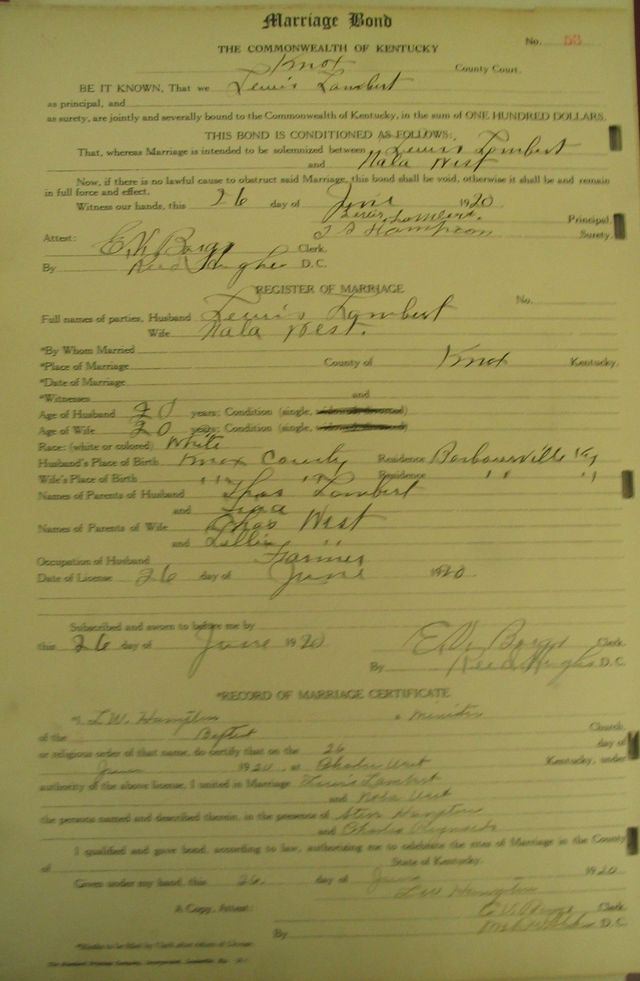 Marriage Bond
THE COMMONWEALTH OF KENTUCKY No. 53
Knox County Court.
BE IT KNOWN, That we Lewis Lambert
as principal, and
as surety, are jointly and severally bound to the Commonwealth of Kentucky, in the sum of ONE HUNDRED DOLLARS.
THIS BOND IS CONDITIONED AS FOLLOWS:
That, whereas Marriage is intended to be solemnized between Lewis Lambert
and Nala West
Now, if there is no lawful cause to obstruct said Marriage, this bond shall be void, otherwise it shall be and remain
in full force and effect.
Witness our hands, this 26 day of June 1920
Lewis Lambert. Principal
Hampton Surety.
Attest: Clerk.
By Reed Hughes D.C.
REGISTER OF MARRIAGE
No.
Full names of parties, Husband Lewis Lambert
Wife Nala West.
*By Whom Married
*Place of Marriage County of Knox Kentucky.
*Date of Marriage
*Witnesses and
Age of Husband 20 years; Condition (single, widowed, divorced)
Age of Wife 20 years; Condition (single, widowed, divorced)
Race: (white or colored) White
Husband's Place of Birth Knox County Residence Barbourville Ky
Wife's Place of Birth " " " " Residence " " "
Names of Parents of Husband Thos Lambert
and
Names of Parents of Wife Chas West
and Lillie "
Occupation of Husband Farmer
Date of License 26 day of June 1920
Subscribed and sworn to before me by
this 26 day of June 1920 Clerk.
By Reed Hughes D.C.
*RECORD OF MARRIAGE CERTIFICATE
*I, L.W. Hampton a Minister
of the Baptist Church
or religious order of that name, do certify that on the 26 day of
June 1920 at Charlie West Kentucky, under
authority of the above license, I united in Marriage Lewis Lambert
and West
the persons named and described therein, in the presence of Hampton
and Charlie Reynolds
I qualified and gave bond, according to law, authorizing me to celebrate the rites of Marriage in the County
of State of Kentucky.
Given under my hand, this 26 day of June 1920
L.W. Hampton
A Copy, Attest: Clerk
By D.C.